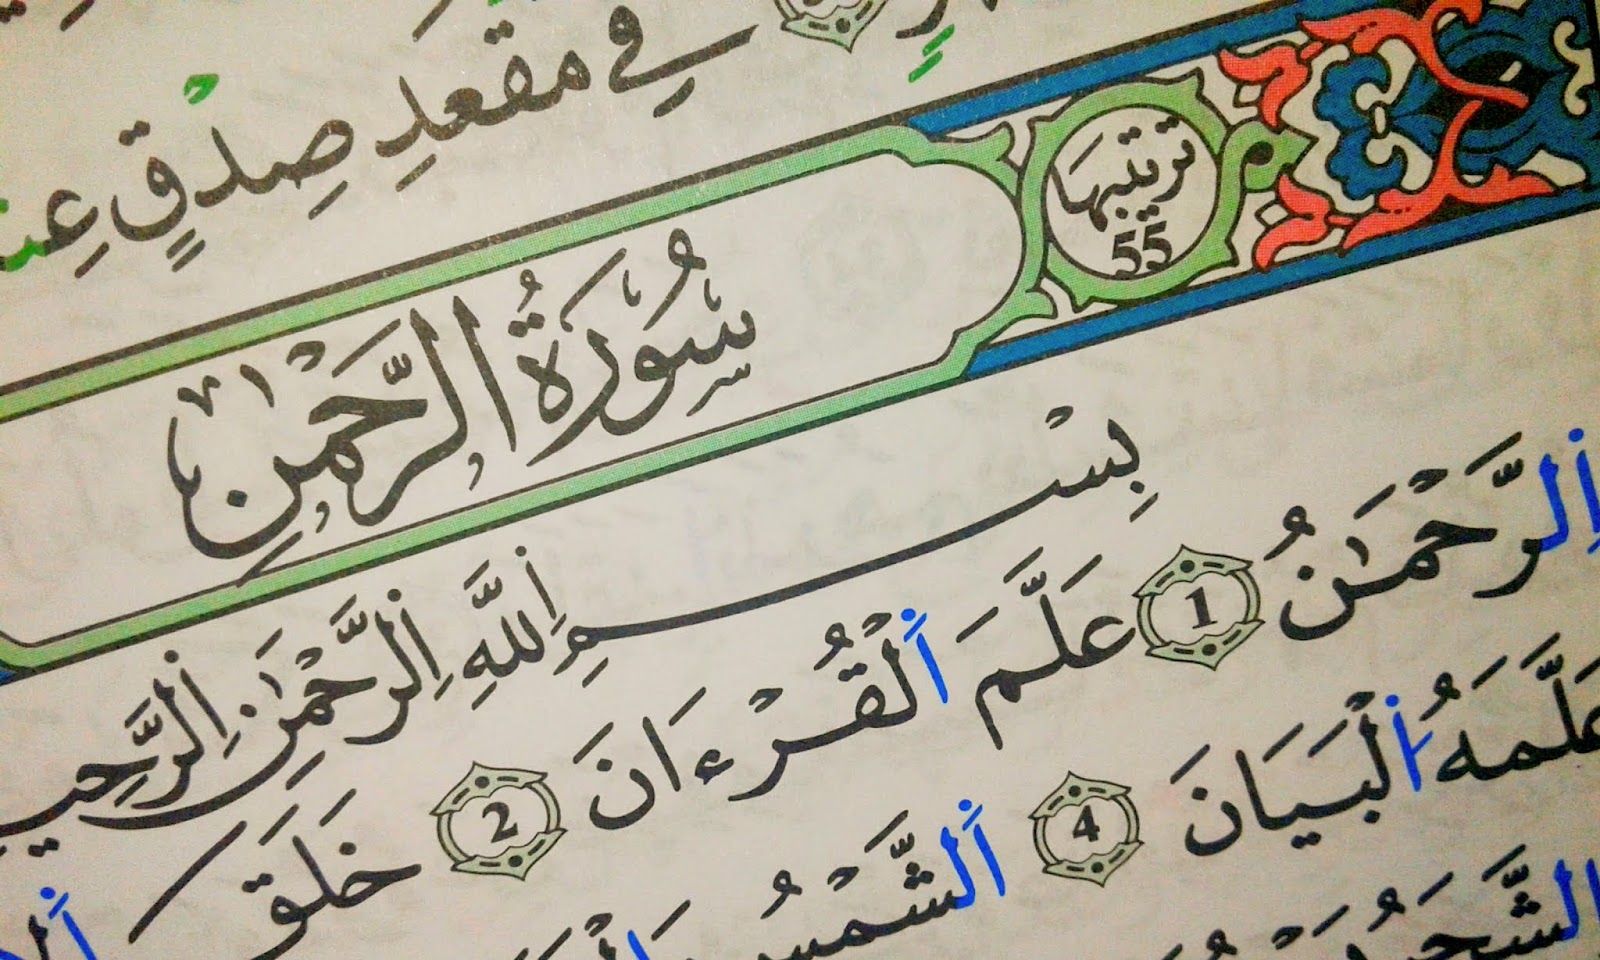 فِي مَقْعَدِ صِدْقٍ
ترتيبها
55
سُورَةُ الرَّحْمَٰنِ
بِسْمِ اِ۬للَّهِ اِ۬لرَّحْمَٰنِ اِ۬لرَّحِي
اِ۬لرَّحْمَٰنُ 1 عَلَّمَ اَ۬لْقُرْءَانَ 2 خَلَقَ
عَلَّمَهُ اُ۬لْبَيَانَ 4 اَ۬لشَّمْسُ